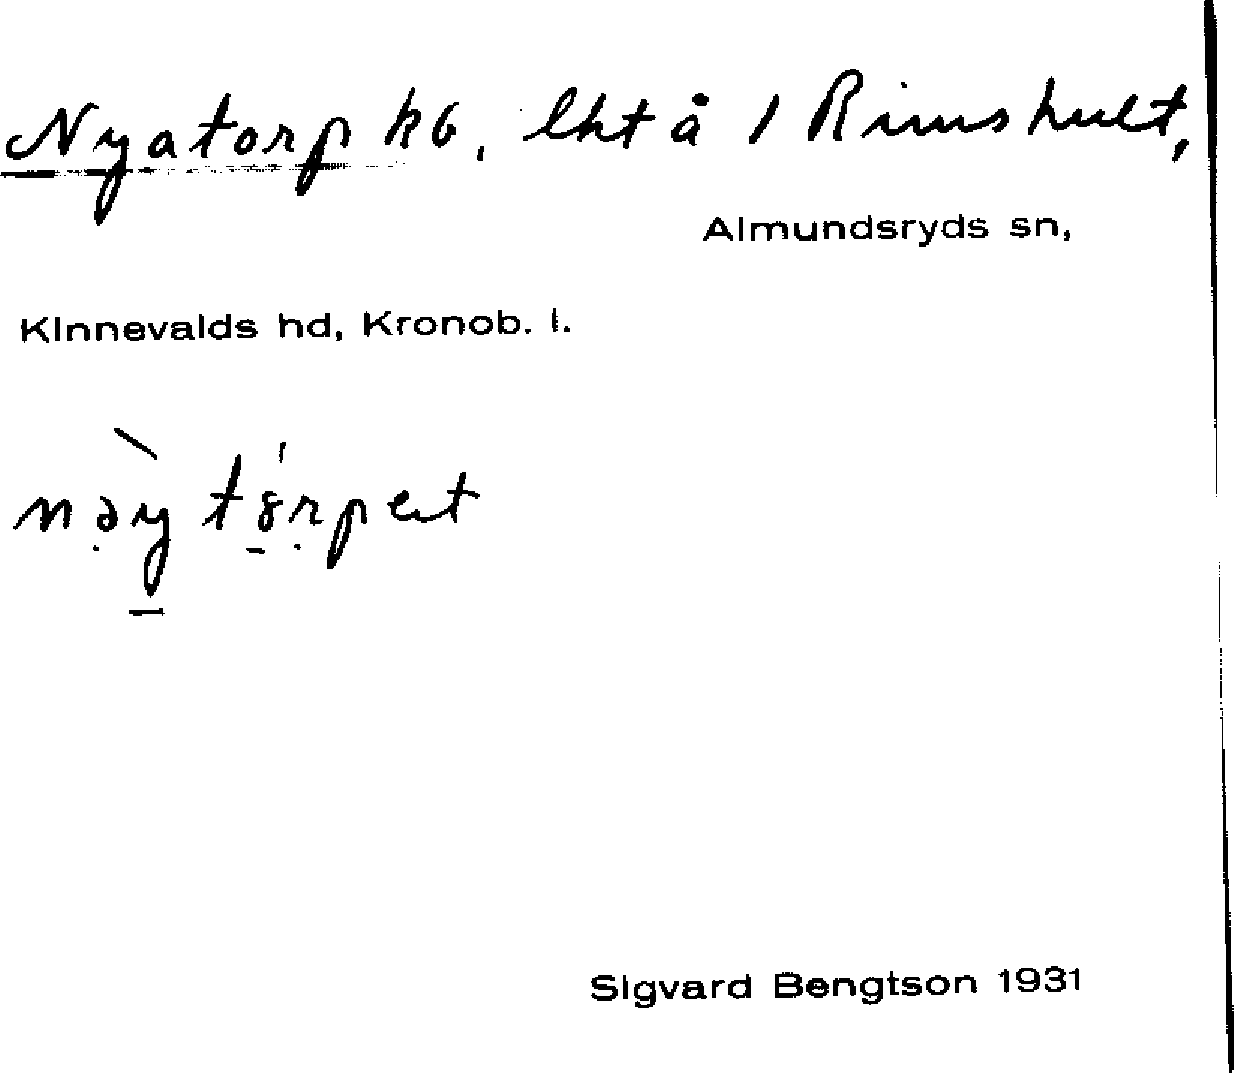 Nyatorp hb, lht å 1 Rimshult,
Almundsryds sn,
Kinnevalds hd, Kronob. l.
Sigvard Bengtson 1931